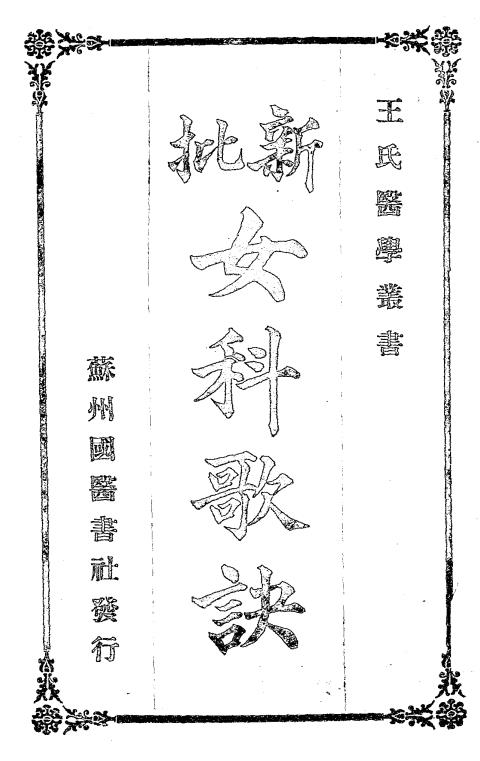 王氏醫學叢書
新批
女科歌訣
蘇州國醫書社發行